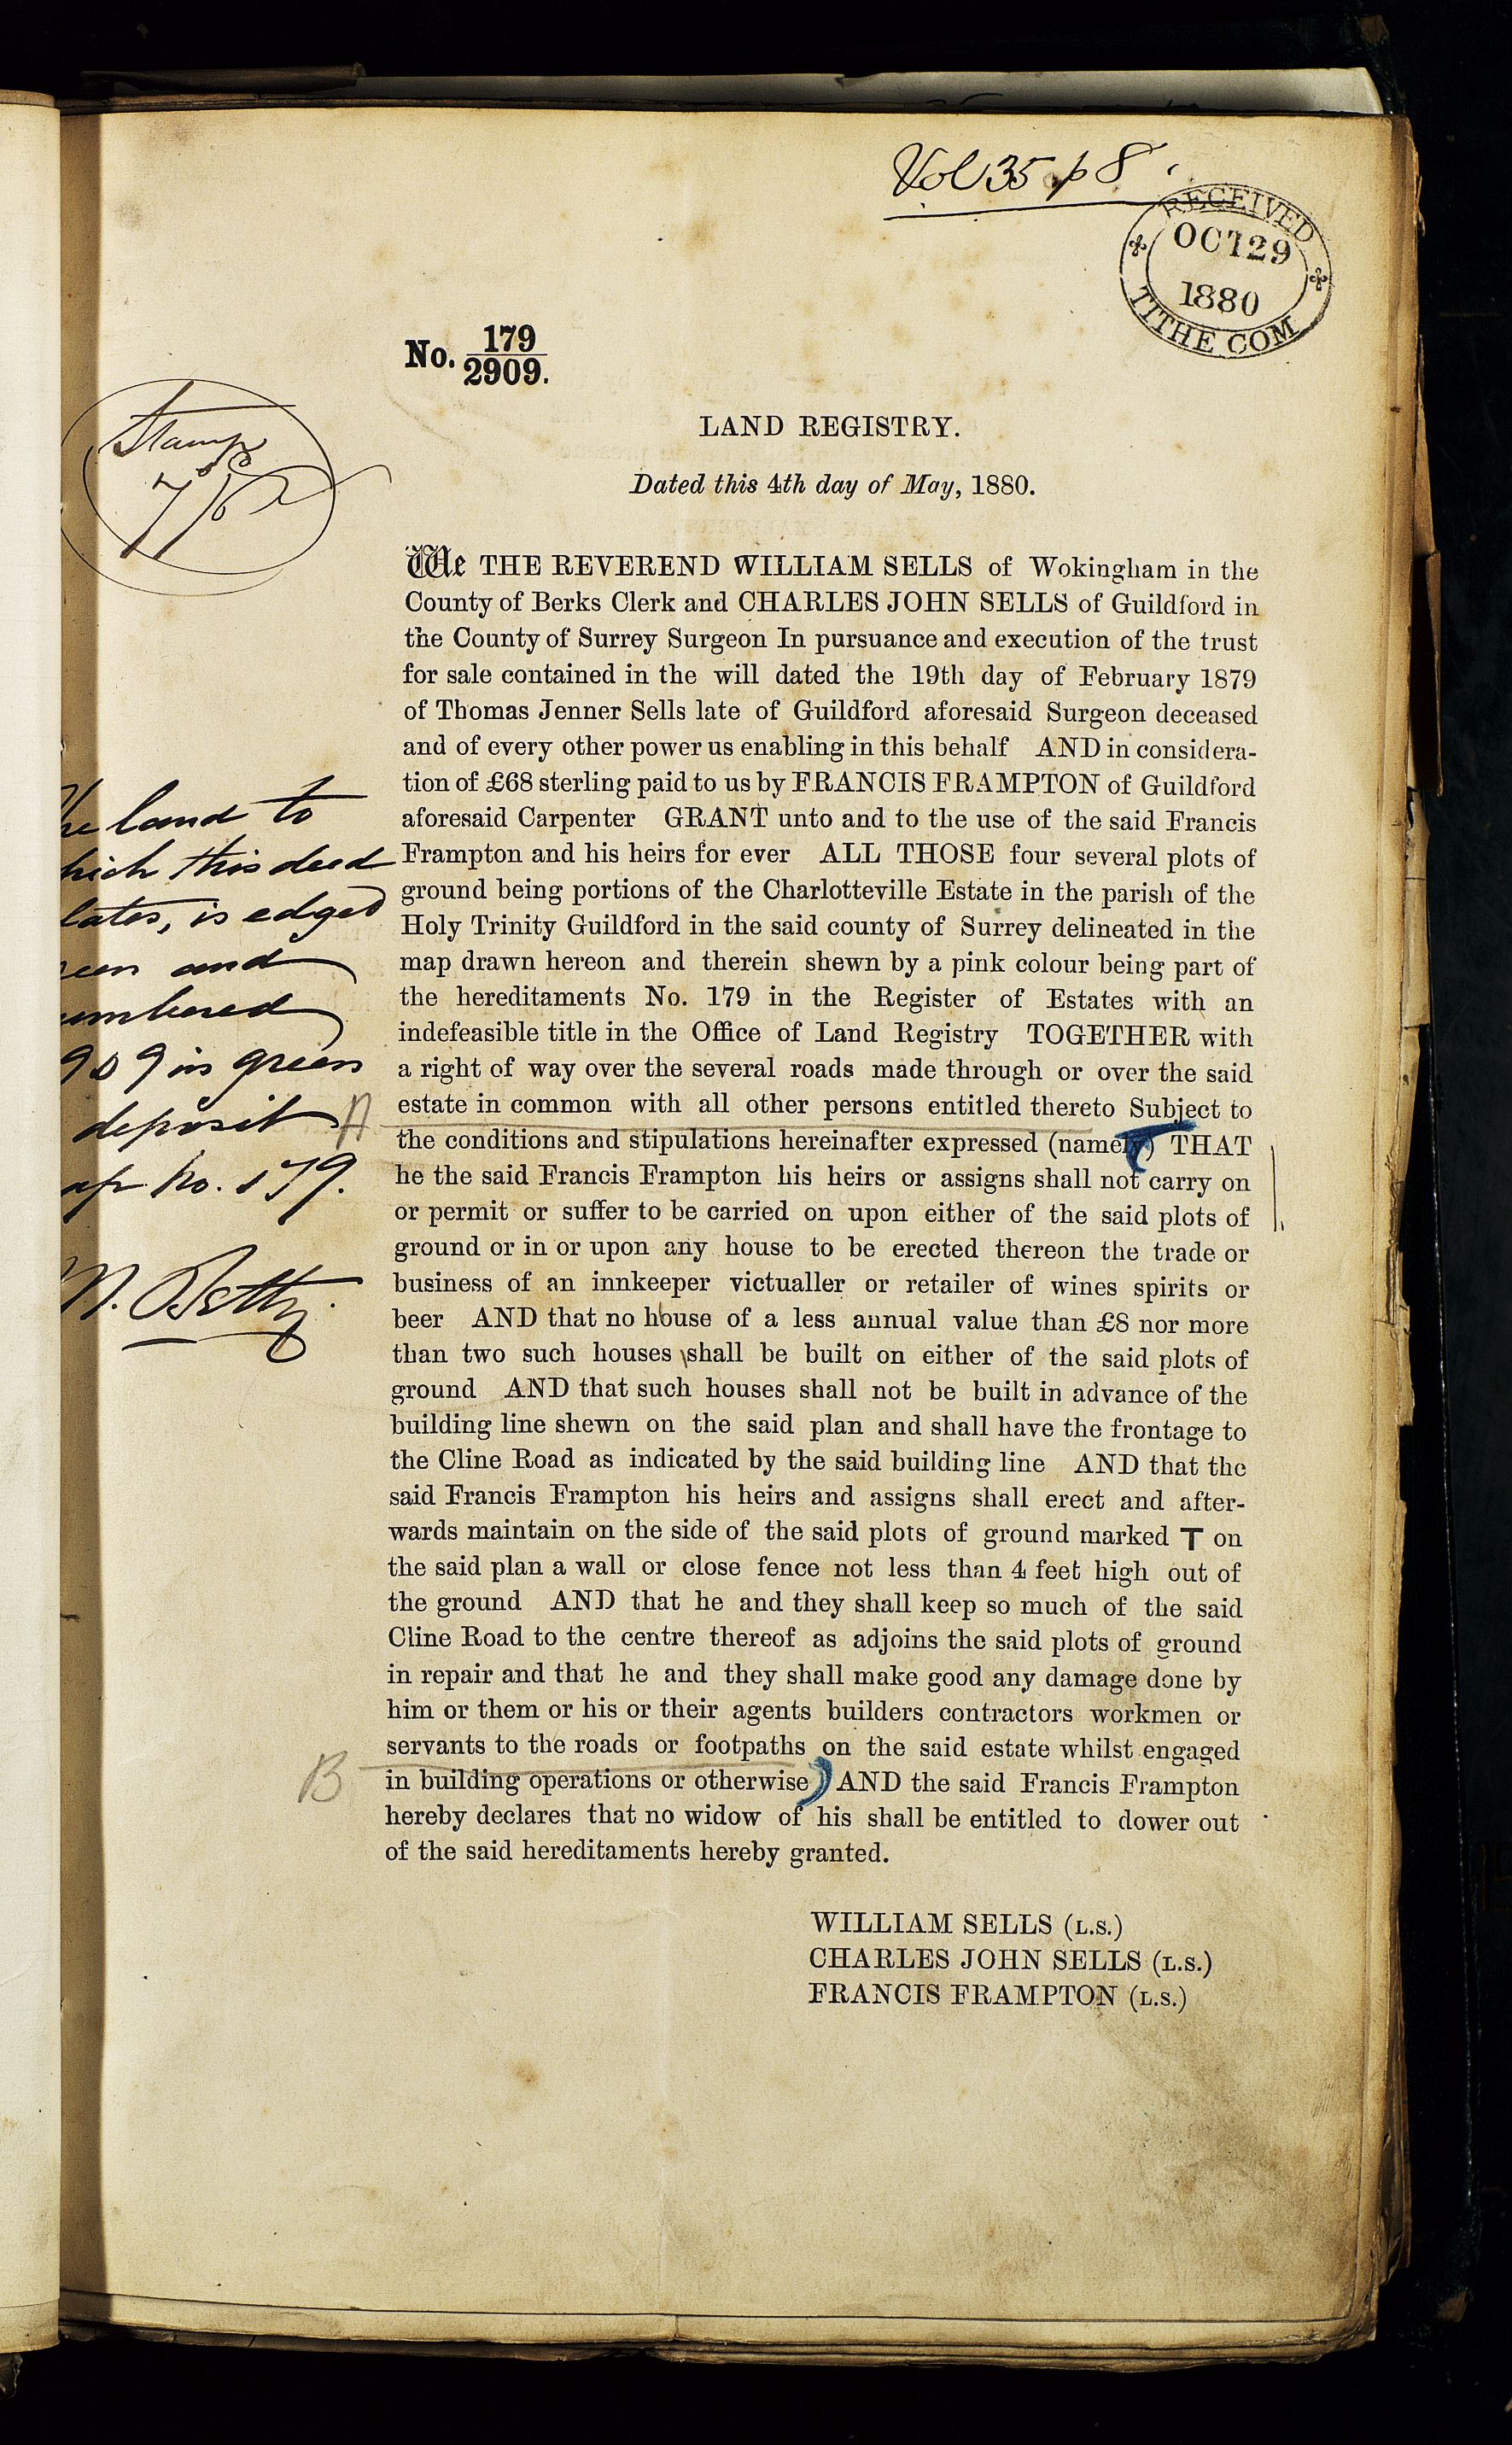 Vol 35 p 8.
RECEIVED
OCT 29
1880
TITHE COM
No. 179
2909.
LAND REGISTRY.
Dated this 4th day of May, 1880.
Stamp
7/6
We THE REVEREND WILLIAM SELLS of Wokingham in the
County of Berks Clerk and CHARLES JOHN SELLS of Guildford in
the County of Surrey Surgeon In pursuance and execution of the trust
for sale contained in the will dated the 19th day of February 1879
of Thomas Jenner Sells late of Guildford aforesaid Surgeon deceased
and of every other power us enabling in this behalf AND in considera-
tion of £68 sterling paid to us by FRANCIS FRAMPTON of Guildford
aforesaid Carpenter GRANT unto and to the use of the said Francis
Frampton and his heirs for ever ALL THOSE four several plots of
ground being portions of the Charlotteville Estate in the parish of the
Holy Trinity Guildford in the said county of Surrey delineated in the
map drawn hereon and therein shewn by a pink colour being part of
the hereditaments No. 179 in the Register of Estates with an
indefeasible title in the Office of Land Registry TOGETHER with
a right of way over the several roads made through or over the said
estate in common with all other persons entitled thereto Subject to
the conditions and stipulations hereinafter expressed (namely) THAT
he the said Francis Frampton his heirs or assigns shall not carry on
or permit or suffer to be carried on upon either of the said plots of
ground or in or upon any house to be erected thereon the trade or
business of an innkeeper victualler or retailer of wines spirits or
beer AND that no house of a less annual value than £8 nor more
than two such houses shall be built on either of the said plots of
ground AND that such houses shall not be built in advance of the
building line shewn on the said plan and shall have the frontage to
the Cline Road as indicated by the said building line AND that the
said Francis Frampton his heirs and assigns shall erect and after-
wards maintain on the side of the said plots of ground marked T on
the said plan a wall or close fence not less than 4 feet high out of
the ground AND that he and they shall keep so much of the said
Cline Road to the centre thereof as adjoins the said plots of ground
in repair and that he and they shall make good any damage done by
him or them or his or their agents builders contractors workmen or
servants to the roads or footpaths on the said estate whilst engaged
in building operations or otherwise) AND the said Francis Frampton
hereby declares that no widow of his shall be entitled to dower out
of the said hereditaments hereby granted.
WILLIAM SELLS (L.S.)
CHARLES JOHN SELLS (L.S.)
FRANCIS FRAMPTON (L.S.)
he land to
hich this deed
lates, is edged
een and
umbered
909 in green
deposit
ap No. 179.
Betty.
A
B